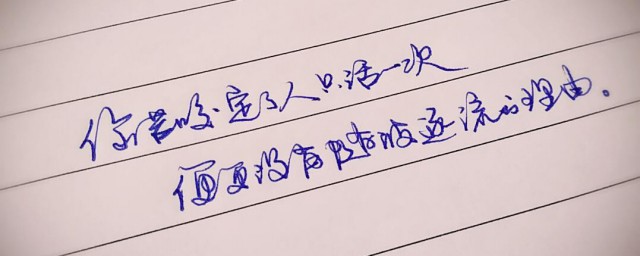 你若咬定了人只活一次
便更没有随波逐流的理由。